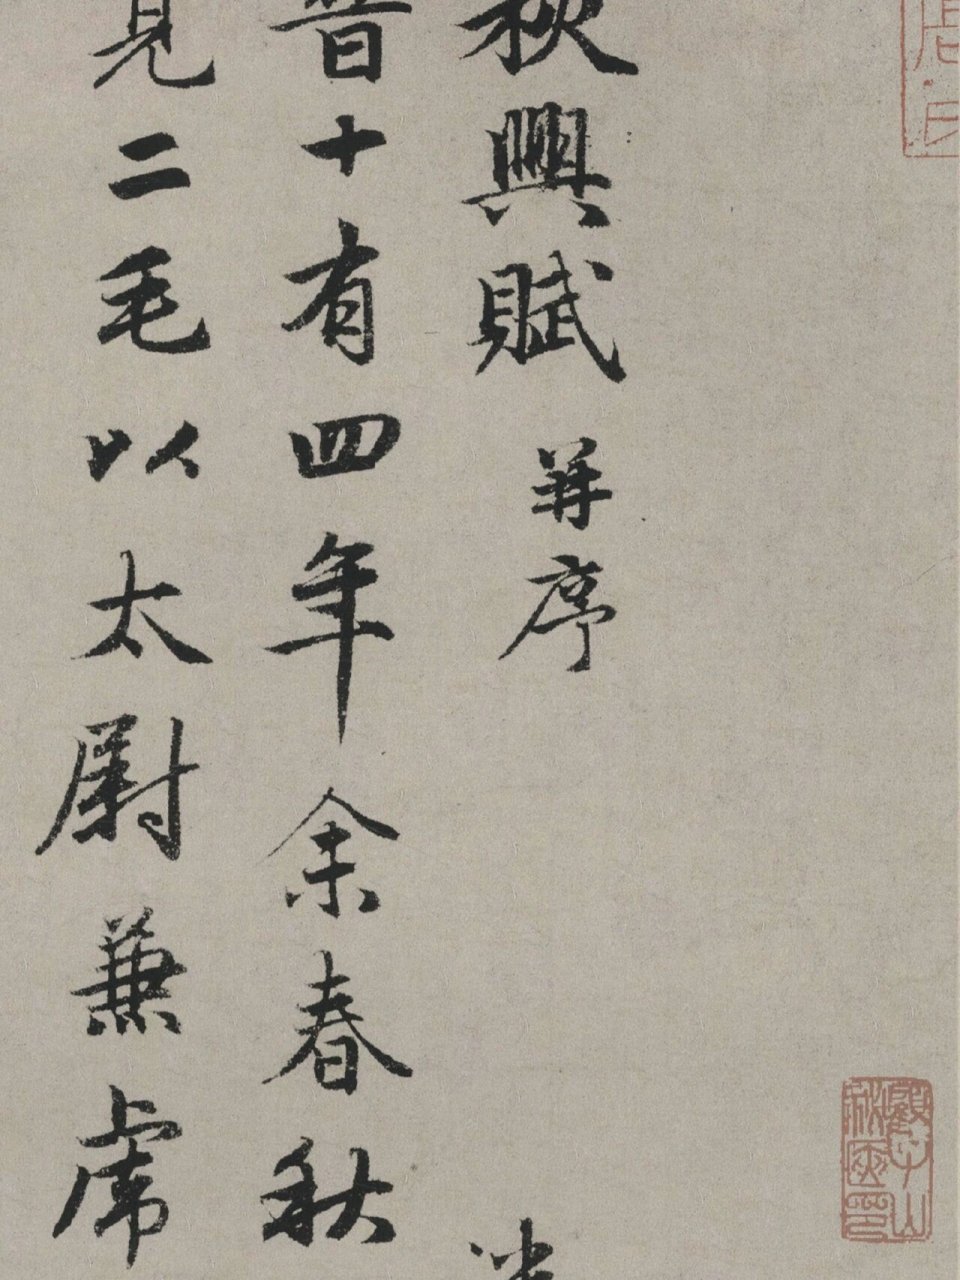 秋興賦 并序
晉十有四年余春秋
見二毛以太尉兼虎